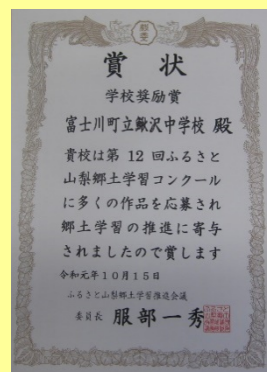 賞状
学校奨励賞
富士川町立鰍沢中学校 殿
貴校は第12回ふるさと
山梨郷土学習コンクール
に多くの作品を応募され
郷土学習の推進に寄与
されましたので賞します
令和元年10月15日
ふるさと山梨郷土学習推進会議
委員長 服部一秀